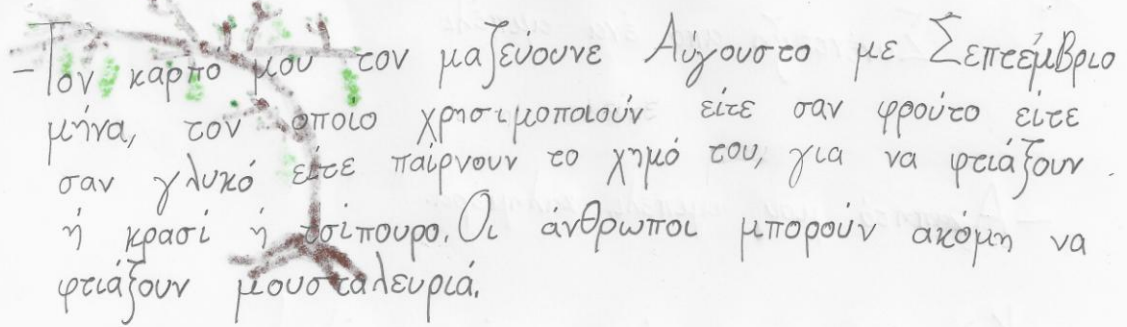 -Τον καρπο μου τον μαζεύουνε Αύγουστο με Σεπτέμβριο
μήνα, τον οποιο χρησιμοποιούν είτε σαν φρούτο είτε
σαν γλυκό είτε παίρνουν το χημό του, για να φτιάξουν
ή κρασί ή τσίπουρο. Οι άνθρωποι μπορούν ακόμη να
φτιάξουν μουσταλευριά.